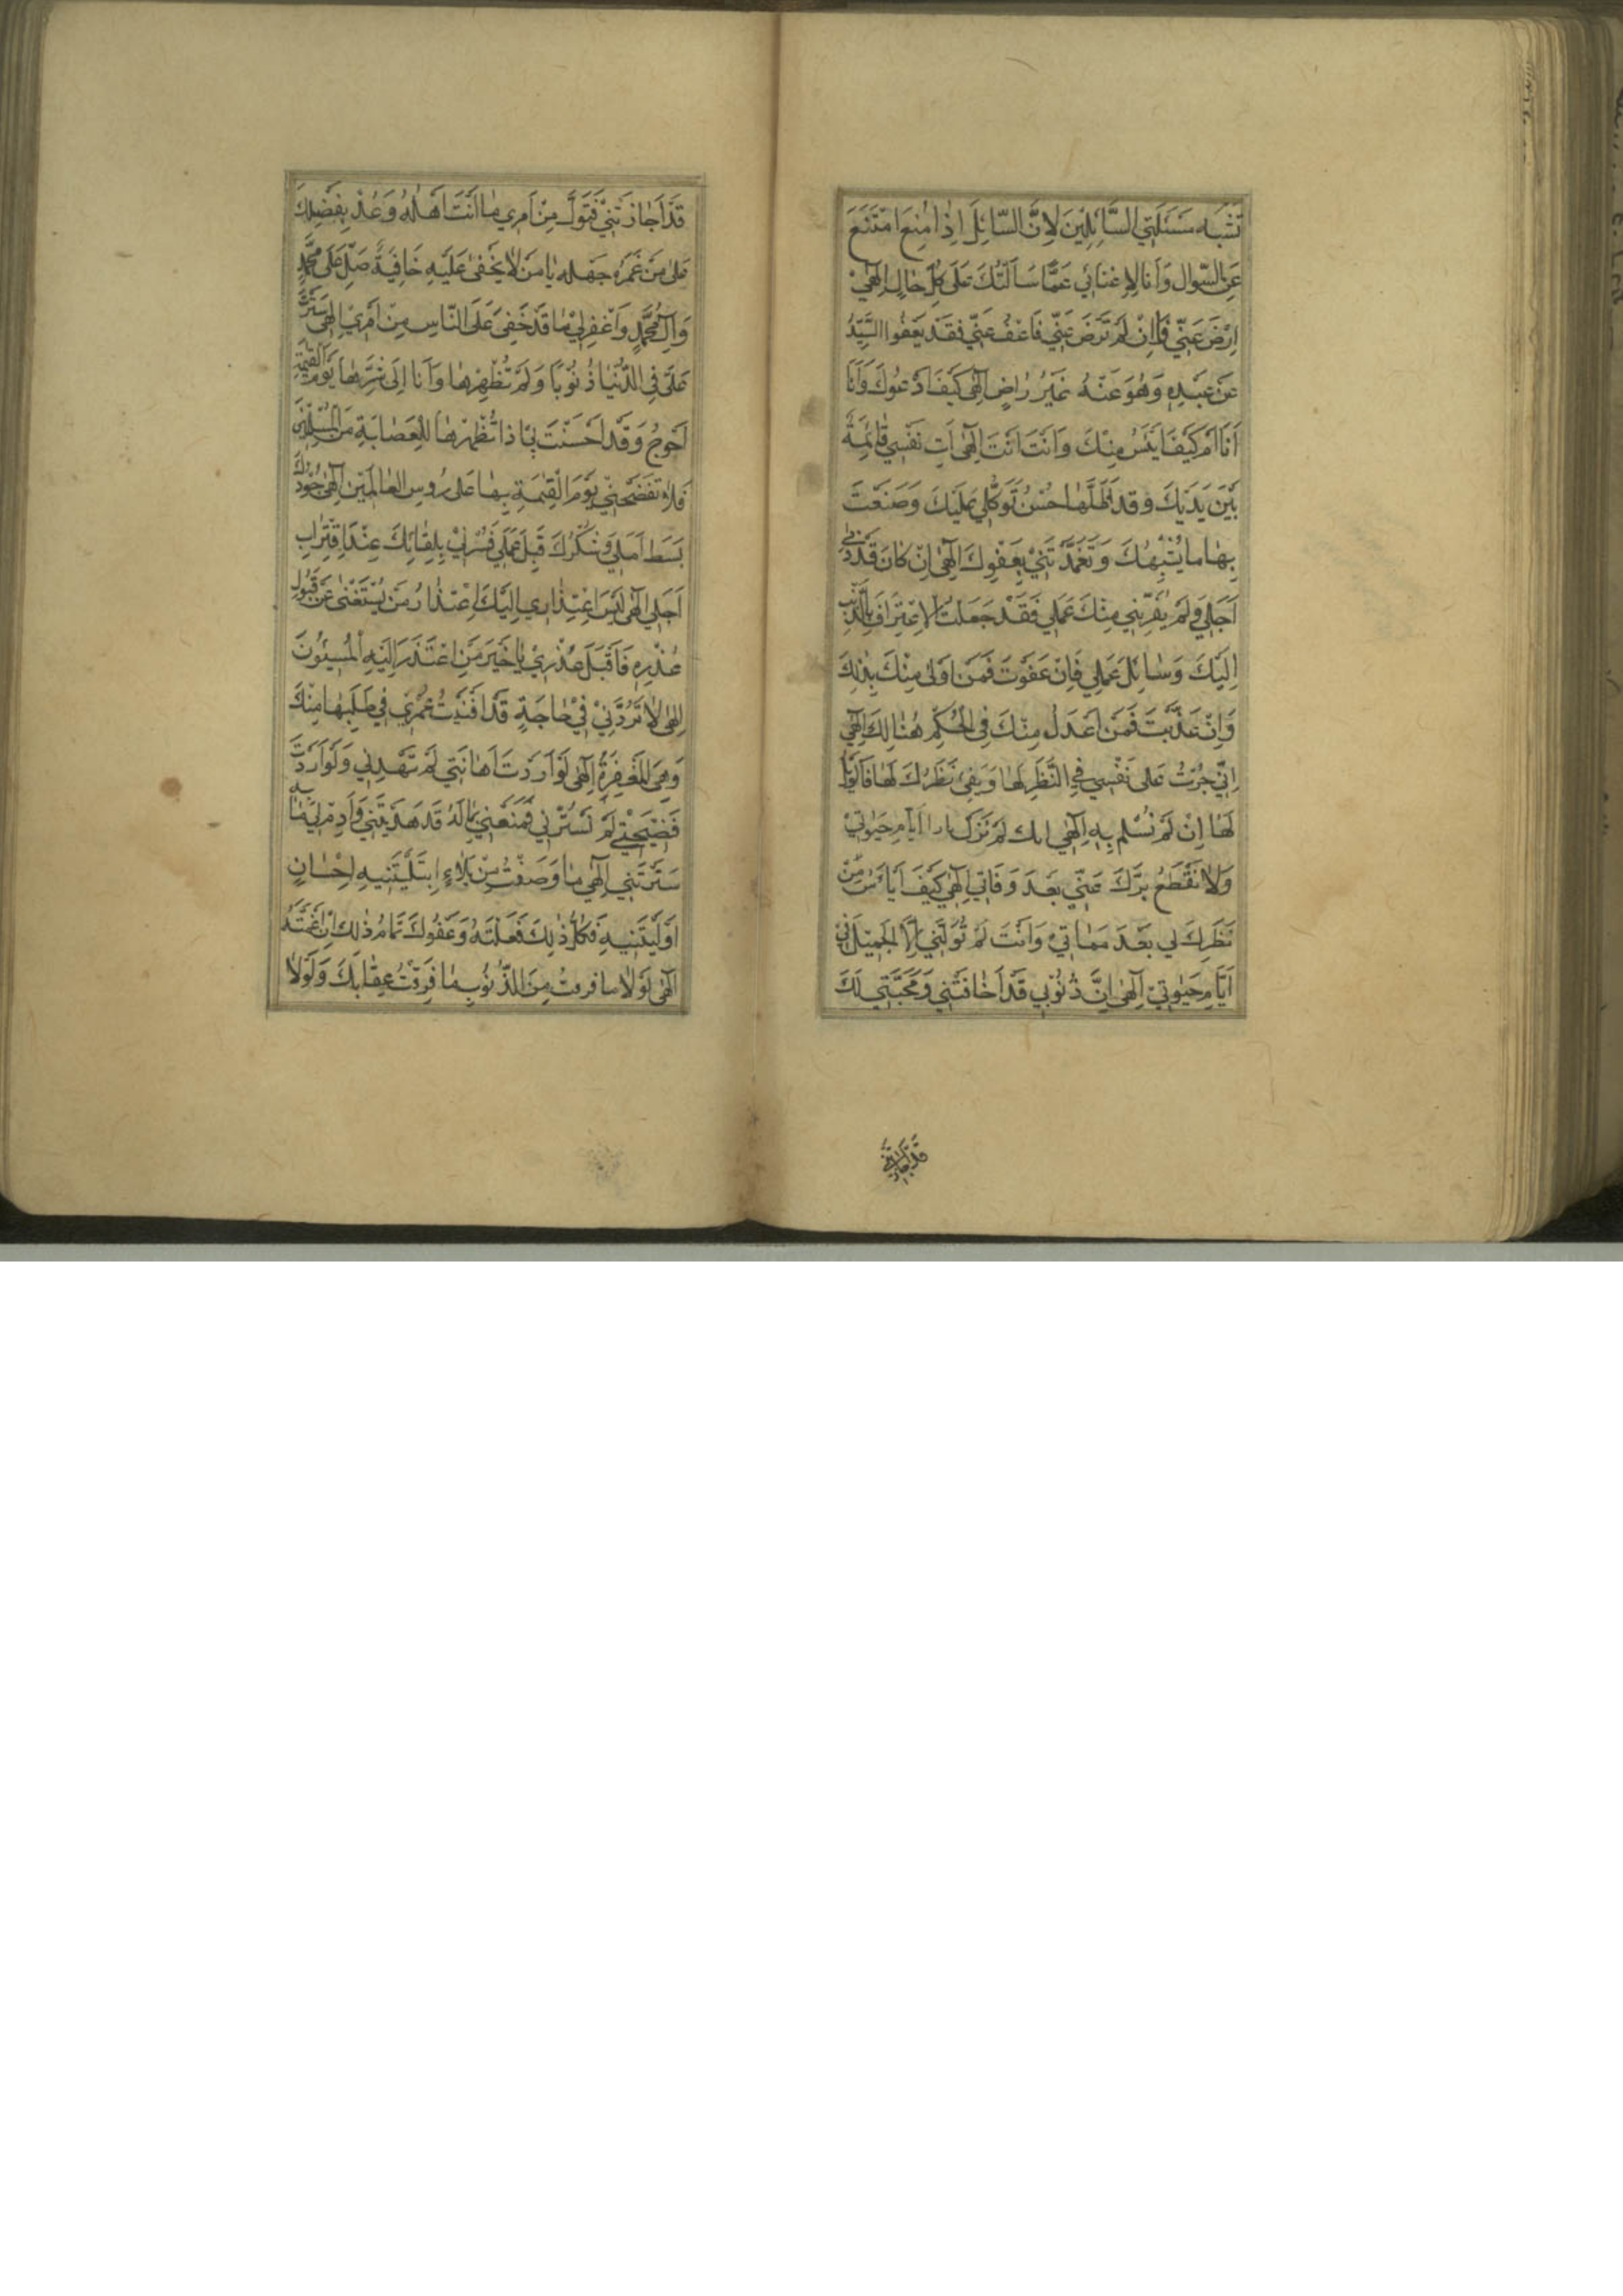 تَشْبَه مَسْئَلَتِي السَّائِلِينَ لِاَنَّ السّائِلَ اِذا مُنِعَ امْتَنَعَ
عَنِ السّوال وَاَنا لا غنائي عَمَّا سَاَلْتُكَ عَلى كُلِّ حالٍ اِلهي
اِرْضَ عَنّي فَاِنْ لَمْ تَرْضَ عَنّي فَاعْفُ عَنّي فَقَدْ يَعْفُوا السَّيِّدُ
عَنْ عَبْدِهِ وَهُوَ عَنْهُ غَيْرُ راضٍ اِلهى كَيْفَ اَدْعُوكَ وَاَنَا
اَنَا اَمْ كَيْفَ اَيْئَسُ مِنْكَ وَاَنْتَ اَنْتَ اِلهى اِن نَفْسي قائِمَةٌ
بَيْنَ يَدَيْكَ وقد اَظَلَّها حُسْنُ تَوَكُّلي عَلَيْكَ وَصَنَعْتَ
بِها ما يُشْبِهُكَ وَتَغَمَّدْتَني بِعَفْوِكَ اِلهى اِنْ كانَ قَدْ دَنى
اَجَلي وَلَمْ يُقَرِّبْني مِنْكَ عَمَلي فَقَدْ جَعَلْتُ الاِعْتِرافَ بِالذَّنْبِ
اِلَيْكَ وَسائِلَ عَمَلي فَاِنْ عَفَوْتَ فَمَنْ اَوْلى مِنْكَ بِذلِكَ
وَاِنْ عَذَّبْتَ فَمَنْ اَعْدَلُ مِنْكَ فِى الْحُكْمِ هُنالِكَ اِلهى
اِنّي جُرْتُ عَلى نَفْسي فِي النَّظَرِ لَها وَبَقِيَ نَظَرُكَ لَها فَالْوَيْلُ
لَها اِنْ لَمْ تَسْلم بِهِ اِلهي انك لَمْ تَزَل بارا اَيّامِ حَيٰوتي
وَلا تَقْطَعْ بِرَّكَ عَنّي بَعْدَ وَفاتي اِلهي كَيْفَ اَيْاَسُ مِنْ
نَظَرِكَ لي بَعْدَ مَماتي وَاَنْتَ لَمْ تُوَلِّني اِلَّا الْجَميلَ في
اَيّامِ حَيٰوتي اِلهى اِنَّ ذُنُوبي قَدْ اَخافَتْني وَمَحَبَّتي لَكَ
قد اجارتني
قَدْ اَجارَتْني فَتَوَلَّ مِنْ اَمْري ما اَنْتَ اَهْلُهُ وَعُدْ بِفَضْلِكَ
عَلى مَنْ غَمَرَهُ جَهْله يا مَنْ لا يَخْفى عَلَيْهِ خافِيَةٌ صَلِّ عَلى مُحَمَّدٍ
وَآلِ مُحَمَّدٍ وَاغْفِرْلي ما قَدْ خَفِيَ عَلَى النّاسِ مِنْ اَمْري اِلهى سَتَرْتَ
عَلَيَّ فِي الدُّنْيا ذُنُوبًا وَلَمْ تُظْهِرْها وَاَنَا اِلى سَتْرِها يَوْمَ الْقِيٰمَةِ
اَحْوَجُ وَقَدْ اَحْسَنْتَ بي اذا تُظْهِرْها لِلْعِصابَةِ مِنَ الْمُسْلِمينَ
فَلا تَفْضَحْني يَوْمَ الْقِيٰمَةِ بِها عَلى رُوسِ الْعالَمينَ اِلهى جُودُكَ
بَسَطَ اَمَلي وَشُكْرُكَ قَبِلَ عَمَلي فَسُرَّني بِلِقائِكَ عِنْدَ اقْتِرابِ
اَجَلي اِلهى لَيْسَ اعْتِذاري اِلَيْكَ اعْتِذارُ مَنْ يَسْتَغْني عَنْ قَبُولِ
عُذْرِهِ فَاقْبَلْ عُذْري يا خَيْرَ مَنِ اعْتَذَرَ اِلَيْهِ الْمُسيئُونَ
اِلهى لا تَرُدَّني في حاجَةٍ قَدْ اَفْنَيْتُ عُمْري في طَلَبِها مِنْكَ
وَهِيَ الْمَغْفِرَةُ اِلهى لَوْ اَرَدْتَ اَهانَتي لَمْ تَهْدِني وَلَوْ اَرَدْتَ
فَضيحَتي لَمْ تَسْتُرْني فَمَتِّعْني بِما لَهُ قَدْ هَدَيْتَني وَاَدِمْ لي ما به
سَتَرْتَني اِلهي ما وَصَفْتُ مِنْ بَلاءٍ ابْتَلَيْتَنيهِ اِحْسانٍ
اَوْلَيْتَنيهِ فَكُلُّ ذلِكَ فَعَلْتَهُ وَعَفْوُكَ تَمامُ ذلِكَ اِنْ اَتْمَمْتَهُ
اِلهى لَوْلا ما قرفت مِنَ الذُّنُوبِ ما فَرِقْتُ عِقابَكَ وَلَوْلا